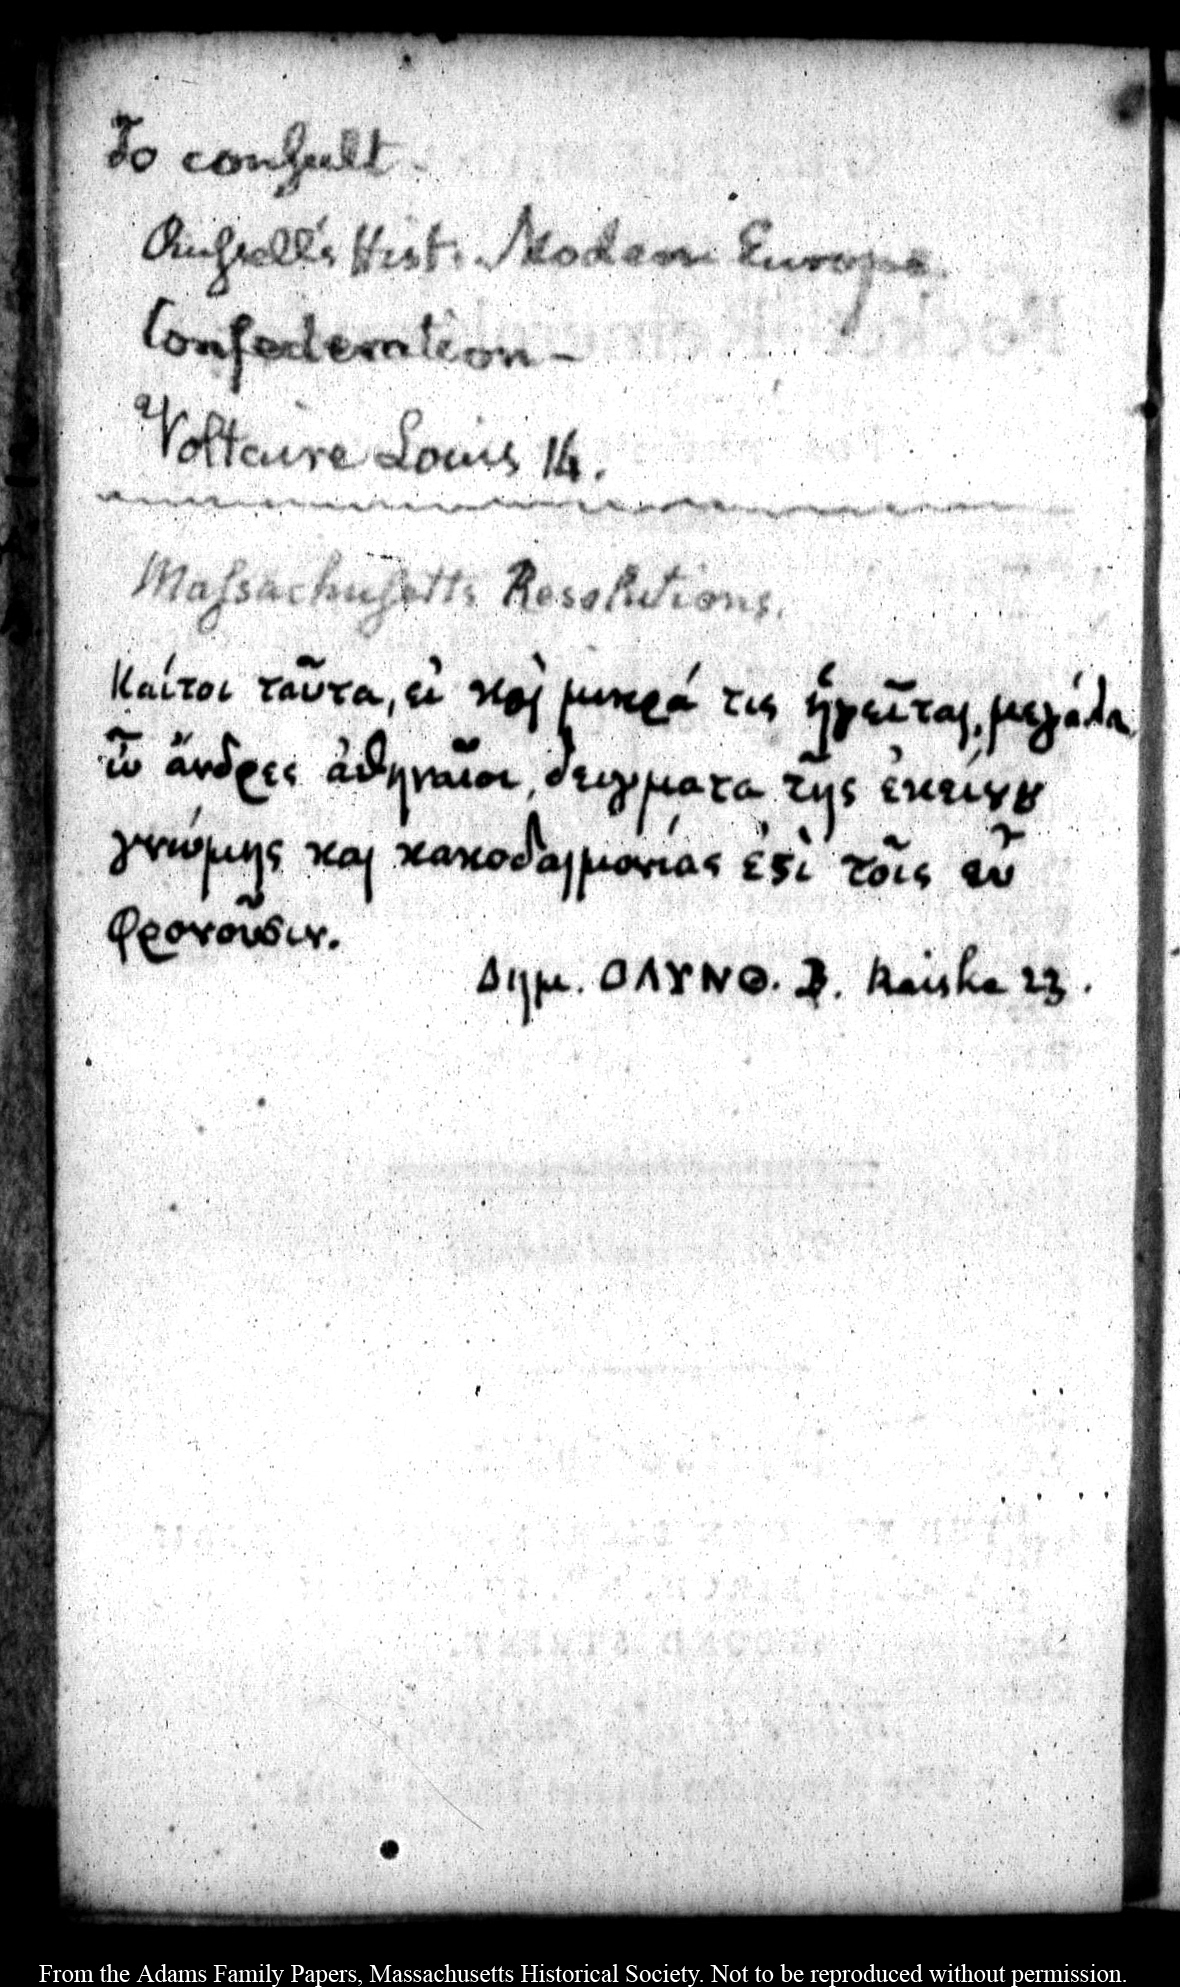 To consult.
Russell's Hist. Modern Europe.
Confederation –
Voltaire Louis 14.
Massachusetts Resolutions.
Καίτοι ταῦτα, εἰ καὶ μικρά τις ἡγεῖται, μεγάλα,
ὦ ἄνδρες ἀθηναῖοι, δειγματα τῆς ἐκείνȣ
γνώμης και κακοδαιμονίας ἐϛὶ τοῖς εὖ
φρονοῦσιν.
Δημ. ΟΛΥΝΘ. Β. Reiske 23.
From the Adams Family Papers, Massachusetts Historical Society. Not to be reproduced without permission.